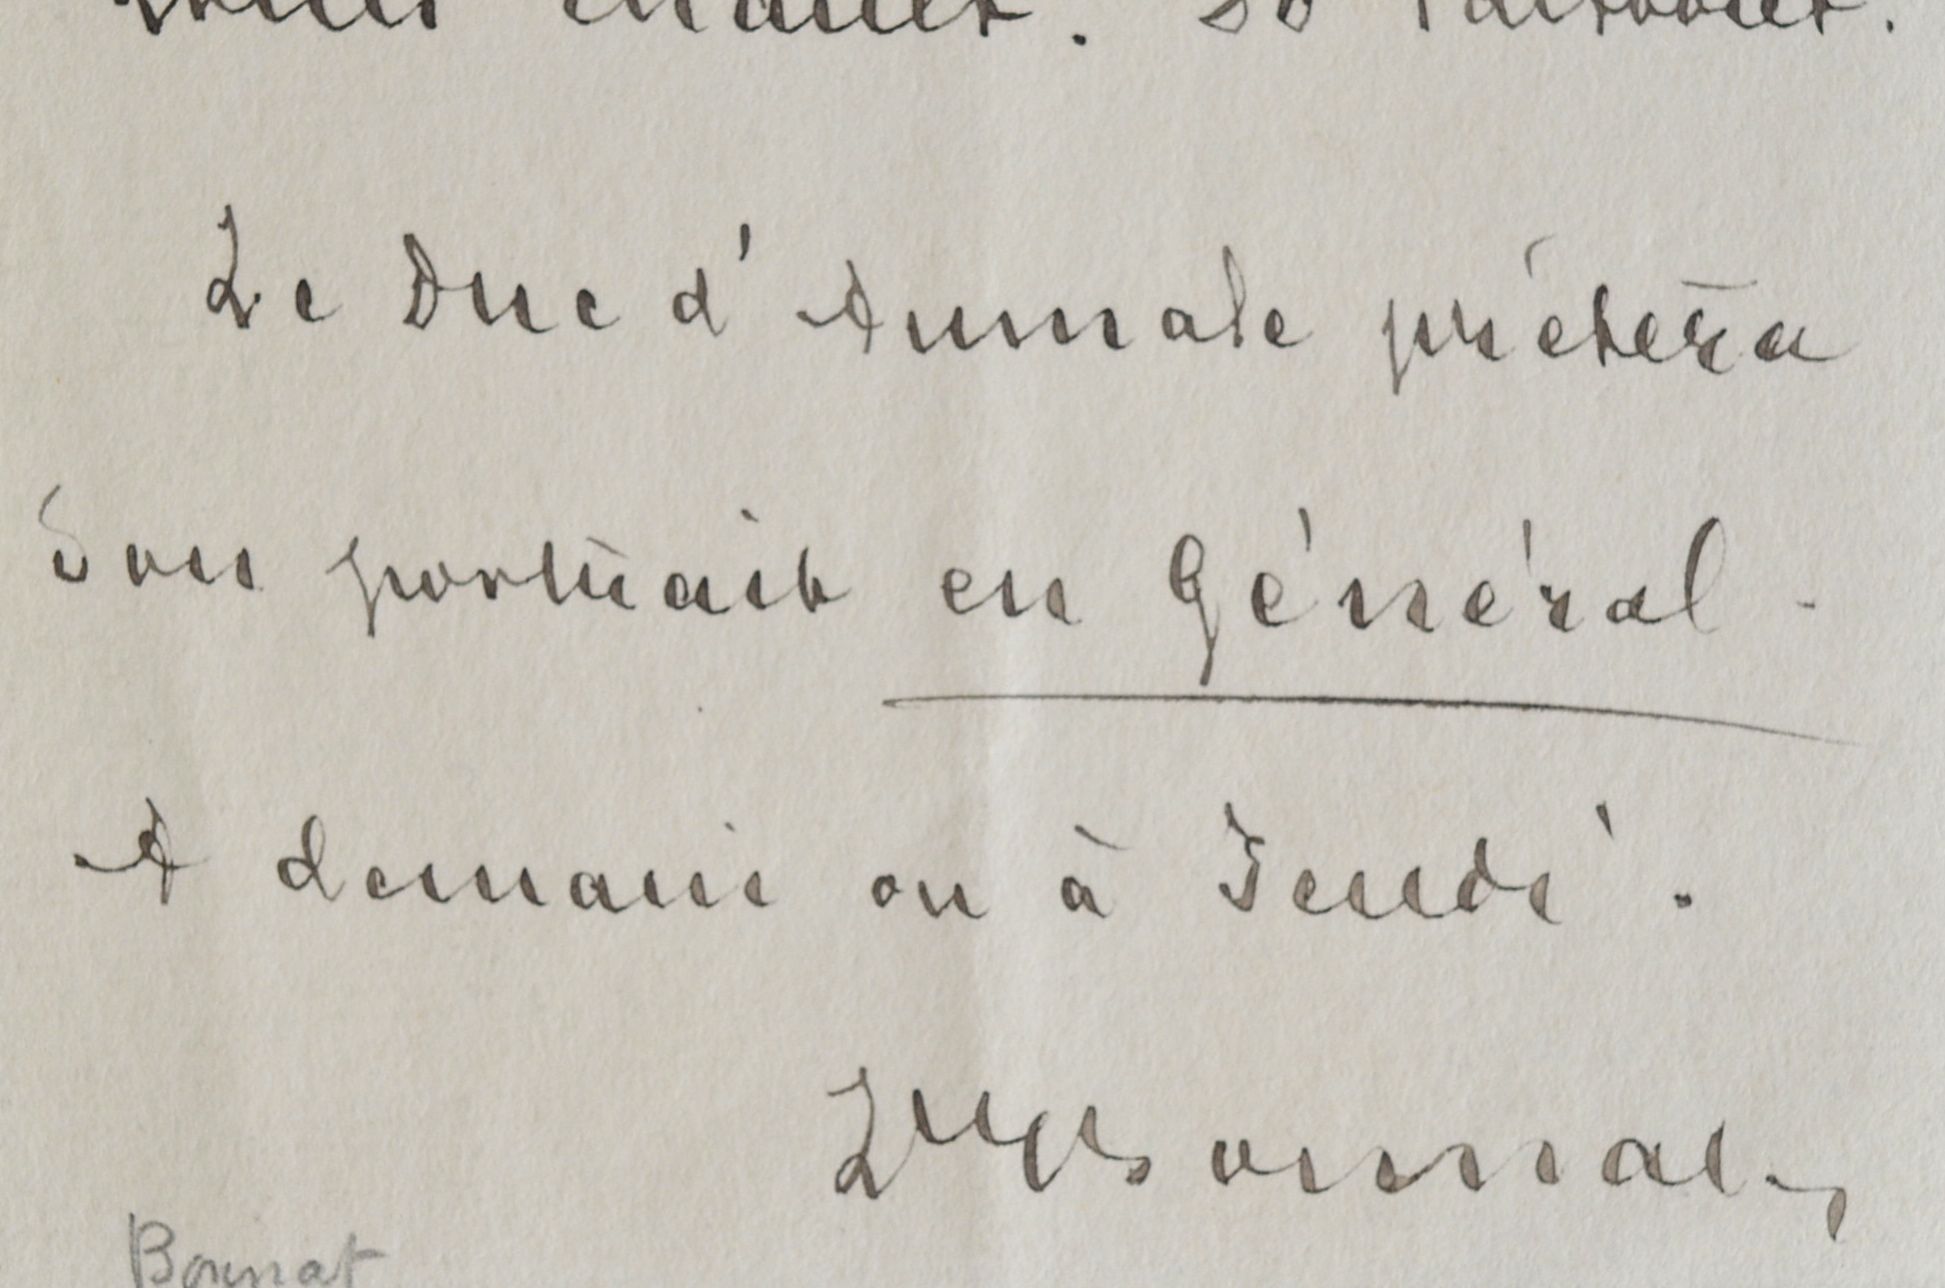 Le Duc d'Aumale prêtera
son portrait en Général.
A demain ou à Jeudi.
Ln Bonnat
Bonnat